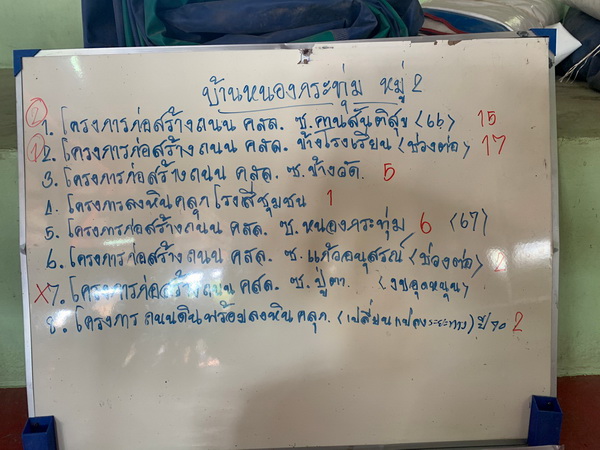 บ้านหนองกระทุ่ม หมู่ 2
② 1. โครงการก่อสร้างถนน คสล. ซ. ศานสันติสุข <66> 15
① 2. โครงการก่อสร้างถนน คสล. ข้างโรงเรียน <ช่วงต่อ> 17
3. โครงการก่อสร้างถนน คสล. ซ. ข้างวัด. 5
4. โครงการลงหินคลุกโรงสีชุมชน 1
5. โครงการก่อสร้างถนน คสล. ซ. หนองกระทุ่ม 6 <67>
6. โครงการก่อสร้างถนน คสล. ซ. แก้วอนุสรณ์ <ช่วงต่อ> 2
X 7. โครงการก่อสร้างถนน คสล. ซ. ปู่ตา <งบอุดหนุน>
8. โครงการ ถนนดินพร้อมลงหินคลุก. <เปลี่ยนแปลงระยะทาง) ปี 70 2